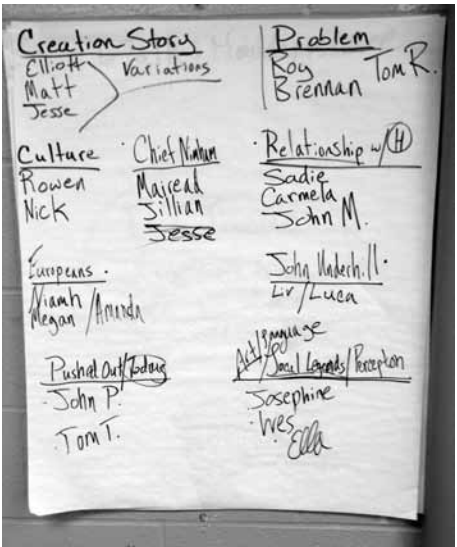 Creation Story
Elliott
Matt
Jesse
Variations
Problem
Roy
Brennan
Tom R.
Culture
Rowen
Nick
· Chief Nimham
Mairead
Jillian
Jesse
· Relationship w/ H
Sadie
Carmela
John M.
Europeans ·
Niamh
Megan / Amanda
John Underhill ·
Liv / Luca
Pushed Out/Today
· John P.
· Tom T.
Art/language
/Local Legends/Perception
Josephine
· Wes
Ella